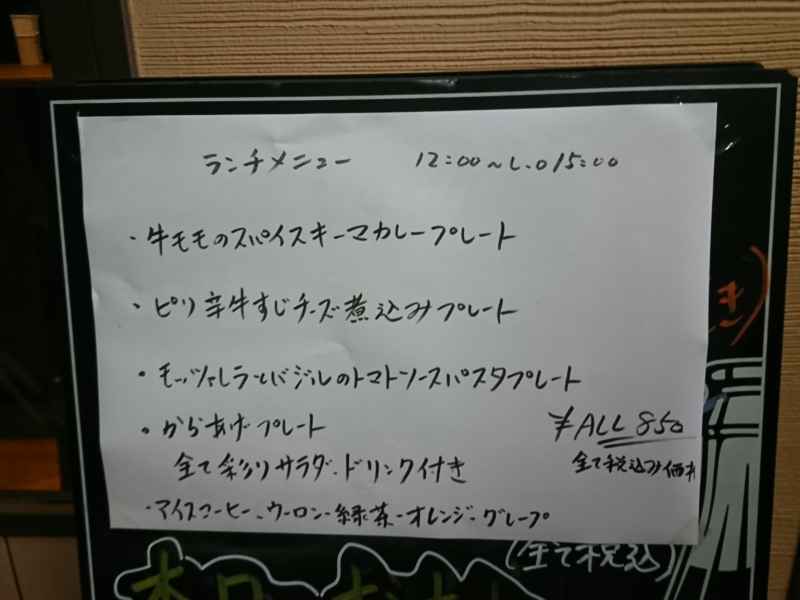 ランチメニュー 12:00~L.O15:00
・牛モモのスパイスキーマカレープレート
・ピリ辛牛すじチーズ煮込みプレート
・モッツァレラとバジルのトマトソースパスタプレート
・からあげプレート
¥ALL 850
全て彩りサラダ、ドリンク付き
全て税込み価
・アイスコーヒー、ウーロン・緑茶・オレンジ・グレープ
(全て税込)
本日